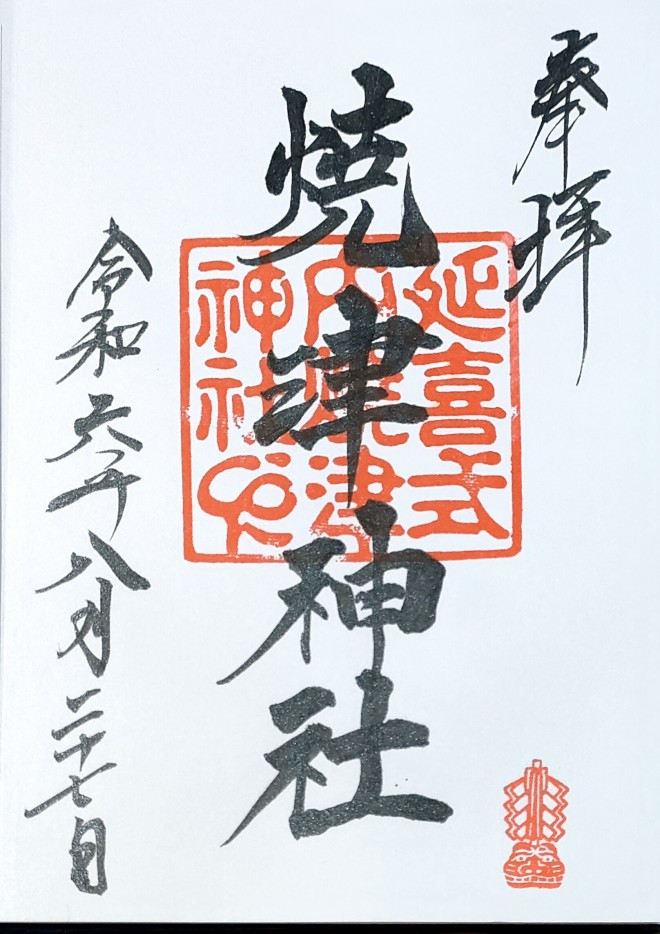 奉拝
焼津神社
延喜式
内焼津
神社印
令和六年八月二十七日